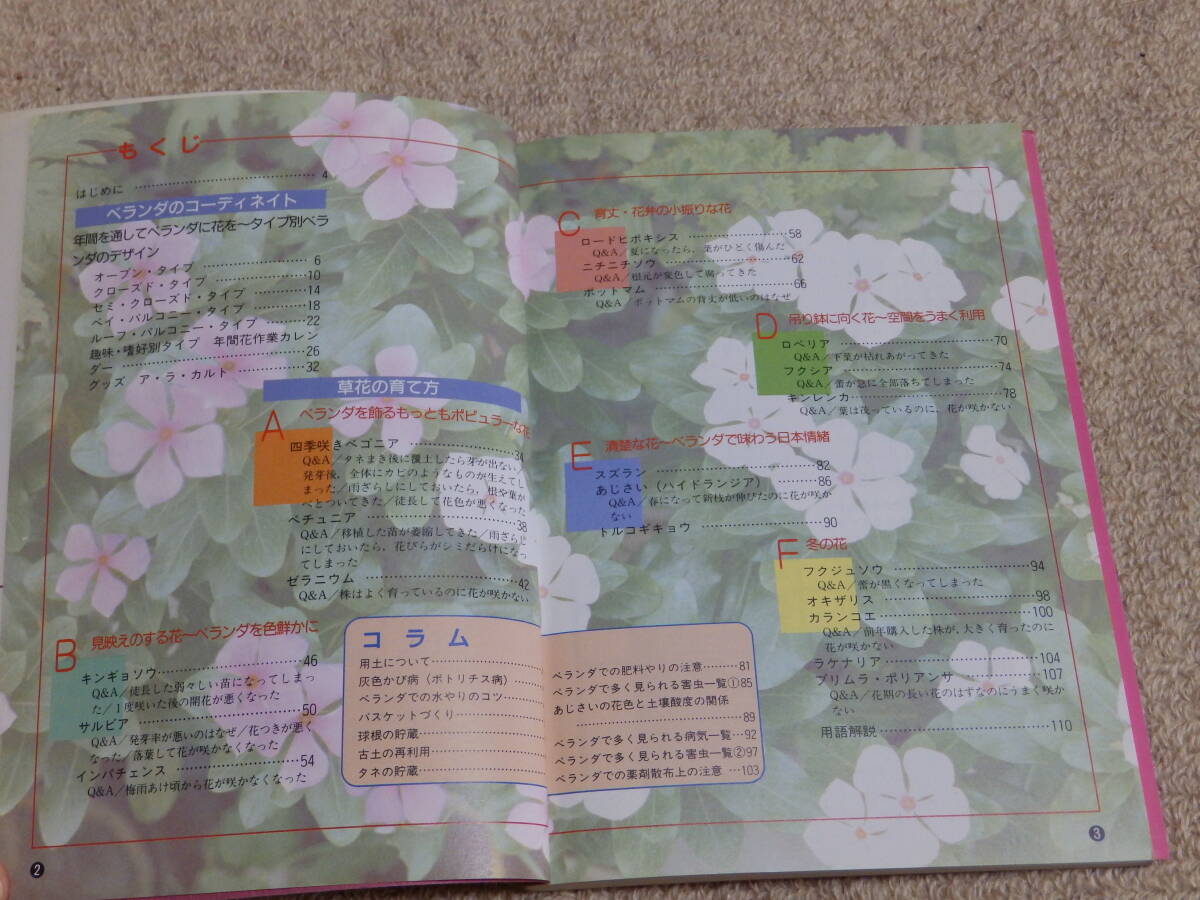 もくじ
はじめに 4
ベランダのコーディネイト
年間を通してベランダに花を〜タイプ別ベラ
ンダのデザイン
オープン・タイプ 6
クローズド・タイプ 10
セミ・クローズド・タイプ 14
ベイ・バルコニー・タイプ 18
ルーフ・バルコニー・タイプ 22
趣味・嗜好別タイプ 年間花作業カレン
ダー 26
グッズ ア・ラ・カルト 32
草花の育て方
A ベランダを飾るもっともポピュラーな花
四季咲きベゴニア 34
Q&A/タネまき後に覆土したら芽が出ない/
発芽後，全体にカビのようなものが生えてし
まった/雨ざらしにしておいたら，根や葉が
べとついてきた/徒長して花色が悪くなった
ペチュニア 38
Q&A/移植した苗が萎縮してきた/雨ざらし
にしておいたら，花びらがシミだらけになっ
てしまった
ゼラニウム 42
Q&A/株はよく育っているのに花が咲かない
B 見映えのする花〜ベランダを色鮮かに
キンギョソウ 46
Q&A/徒長した弱々しい苗になってしまっ
た/1度咲いた後の開花が悪くなった
サルビア 50
Q&A/発芽率が悪いのはなぜ/花つきが悪く
なった/落葉して花が咲かなくなった
インパチェンス 54
Q&A/梅雨あけ頃から花が咲かなくなった
コラム
用土について
灰色かび病（ボトリチス病）
ベランダでの水やりのコツ
バスケットづくり
球根の貯蔵
古土の再利用
タネの貯蔵
2
C 背丈・花弁の小振りな花
ロードヒポキシス 58
Q&A/夏になったら，葉がひどく傷んだ
ニチニチソウ 62
Q&A/根元が変色して腐ってきた
ポットマム 66
Q&A/ポットマムの背丈が低いのはなぜ
D 吊り鉢に向く花〜空間をうまく利用
ロベリア 70
Q&A/下葉が枯れあがってきた
フクシア 74
Q&A/蕾が急に全部落ちてしまった
キンレンカ 78
Q&A/葉は茂っているのに，花が咲かない
E 清楚な花〜ベランダで味わう日本情緒
スズラン 82
あじさい（ハイドランジア） 86
Q&A/春になって新枝が伸びたのに花が咲か
ない
トルコギキョウ 90
F 冬の花
フクジュソウ 94
Q&A/蕾が黒くなってしまった
オキザリス 98
カランコエ 100
Q&A/前年購入した株が，大きく育ったのに
花が咲かない
ラケナリア 104
プリムラ・ポリアンサ 107
Q&A/花期の長い花のはずなのにうまく咲か
ない
用語解説 110
ベランダでの肥料やりの注意 81
ベランダで多く見られる害虫一覧① 85
あじさいの花色と土壌酸度の関係
89
ベランダで多く見られる病気一覧 92
ベランダで多く見られる害虫一覧② 97
ベランダでの薬剤散布上の注意 103
3